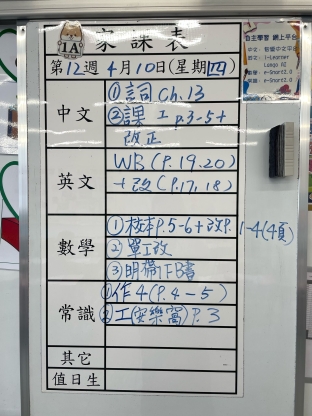 1A
家課表
第12週 4月10日(星期四)
中文
①詞 ch.13
②課工 p.3-5+
改正
英文
WB(P.19.20)
+改(P.17,18)
數學
①校本P.5-6+改P.1-4(4頁)
②單工改
③明帶下B書
常識
①作4(P.4-5)
②工(安樂窩)P.3
其它
值日生
自主學習 網上平台